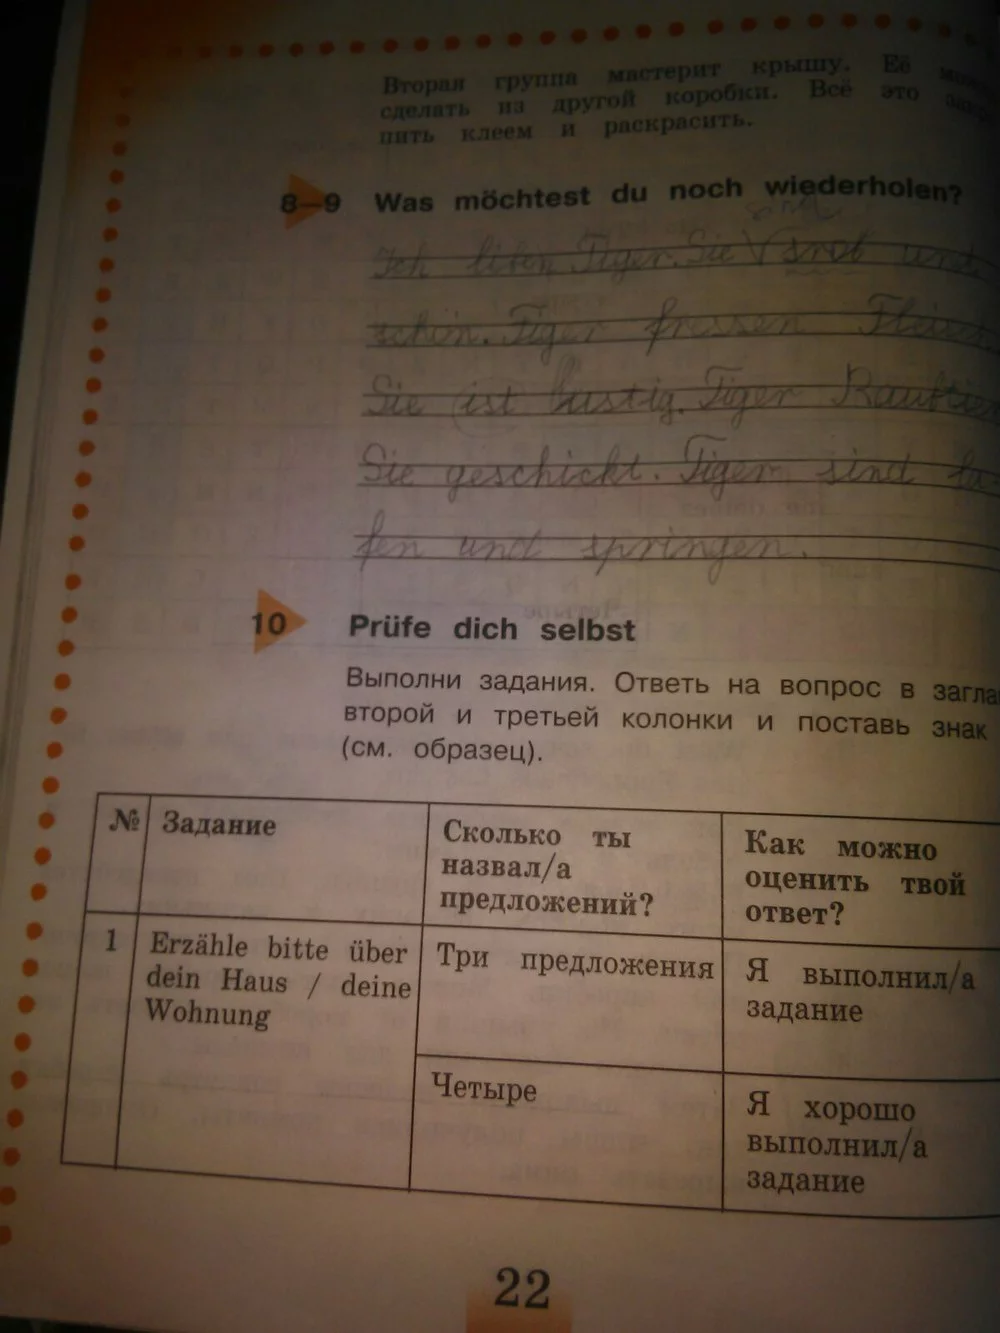 Вторая группа мастерит крышу. Её
сделать из другой коробки. Всё это
пить клеем и раскрасить.
8—9 Was möchtest du noch wiederholen?
sind
Ich liben Tiger. Sie √ srob und
schön. Tiger fressen
Sie ist lustig. Tiger
Sie geschickt. Tiger sind
fen und springen.
10 Prüfe dich selbst
Выполни задания. Ответь на вопрос в
второй и третьей колонки и поставь знак
(см. образец).
№ Задание Сколько ты назвал/а предложений? Как можно оценить твой ответ?
1 Erzähle bitte über dein Haus / deine Wohnung Три предложения Я выполнил/а задание
Четыре Я хорошо выполнил/а задание
22